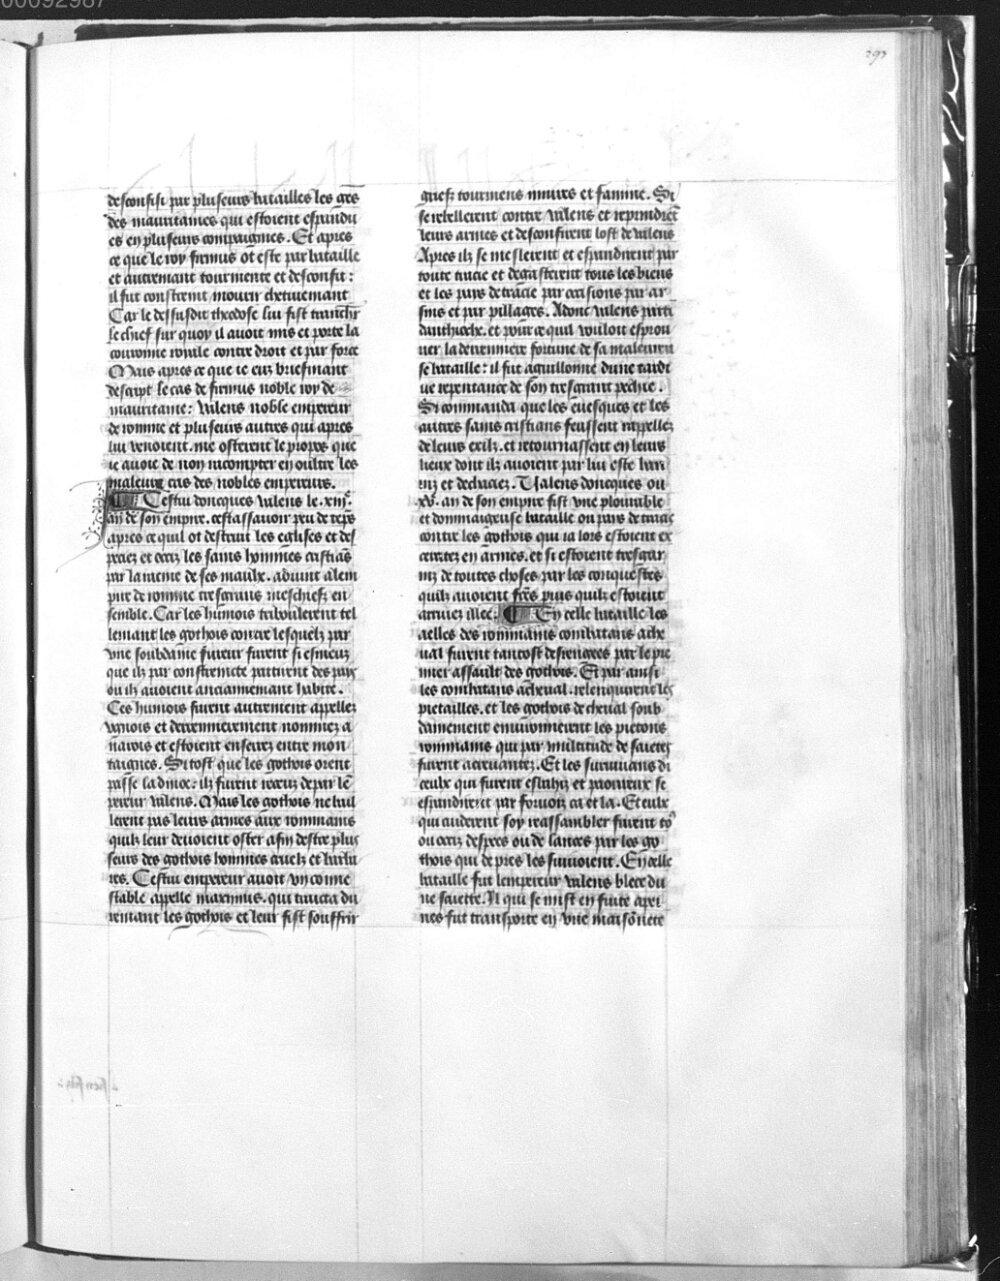 00092987
293
desconfist par plusieurs batailles les gēs
des mauritaines qui estoient espandu
es en plusieurs compaignies. Et apres
ce que le roy firmus ot este par bataille
et autremant tourmente et desconfit:
il fut constreint mourir chetiuemant
Car le dessusdit theodose lui fist tranchir
le chief sur quoy il auoit mis et porte la
couronne roiale contre droit et par force
Mais apres ce que ie euz briefmant
descript le cas de firmus noble roy de
mauritaine: Valens noble empereur
de romme et plusieurs autres qui apres
lui venoient. me osterent le propos que
ie auoie de non racompter en oultre les
maleureux cas des nobles empereurs.
Cestui doncques valens le .xiiij.
an de son empire. cestassauoir peu de tēps
apres ce quil ot destruit les eglises et des
peciez et occiz les sains hommes cristiās
par la mein de ses maulx. aduint a lem
pire de romme tresgrans meschiefz en
semble. Car les humois triboulerent tel
lemant les gothois contre lesquelz par
vne soubdaine fureur furent si esmeuz
que ilz par constreincte partirent des pays
ou ilz auoient anciannemant habite.
Ces humois furent autrement appellez
vgnois et derrennierement nommez a
nauois et estoient enserrez entre mon
taignes. Si tost que les gothois orent
passe la dinoe: ilz furent receuz de par lē
pereur valens. Mais les gothois ne bail
lerent pas leurs armes aux rommains
quilz leur deuoient oster afin destre plus
seurs des gothois hommes auelz et barba
res. Cestui empereur auoit vn conne
stable appelle maximus. qui traicta du
remant les gothois et leur fist souffrir
griefz tourmens iniures et famine. Si
se rebellerent contre valens et reprindrēt
leurs armes et desconfirent lost de valens
Apres ilz se meslerent et espandirent par
toute tracie et degasterent tous les biens
et les pays de tracie par occisions par ar
sins et par pillages. Adonc valens parti
danthioche. et pour ce quil vouloit esprou
uer la derenniere fortune de sa maleureu
se bataille: il fut aguillonne dune tardi
ue repentance de son tresgrant pechie.
Si commanda que les euesques et les
autres sains cristians feussent rappellez
de leurs exilz. et retournassent en leurs
lieux dont ilz auoient par lui este ban
niz et dechaciez. Valens doncques ou
xv. an de son empire fist vne plourable
et dommaigeuse bataille ou pays de tracie
contre les gothois qui ia lors estoient ex
cercitez en armes. et si estoient tresgar
niz de toutes choses par les conquestes
quilz auoient frēs puis quilz estoient
arriuez illec. En celle bataille les
aelles des rommains combatans a che
ual furent tantost desrengees par le pre
mier assault des gothois. Et par ainsi
les combatans a cheual. relenquirent les
pietailles. et les gothois de cheual soub
dainement enuironnerent les pietons
rommains qui par multitude de saietes
furent acrauantez. Et les suruiuans di
ceulx qui furent esbahiz et paoureux se
espandirent par foruoiz ca et la. Et eulx
qui auderent soy reassambler furent to9
ou occiz despees ou de lances par les go
thois qui de pres les suiuoient. En celle
bataille fut lempereur valens blece du
ne saiette. Il qui se mist en fuite a pei
nes fut transporte en vne maisōnete